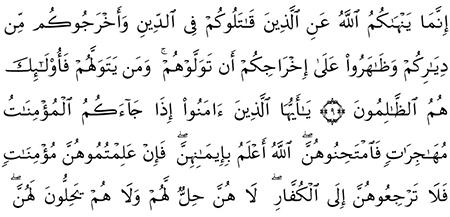 إِنَّمَا يَنْهَىٰكُمُ ٱللَّهُ عَنِ ٱلَّذِينَ قَٰتَلُوكُمْ فِى ٱلدِّينِ وَأَخْرَجُوكُم مِّن
دِيَٰرِكُمْ وَظَٰهَرُوا۟ عَلَىٰٓ إِخْرَاجِكُمْ أَن تَوَلَّوْهُمْ ۚ وَمَن يَتَوَلَّهُمْ فَأُو۟لَٰٓئِكَ
هُمُ ٱلظَّٰلِمُونَ ﴿٩﴾ يَٰٓأَيُّهَا ٱلَّذِينَ ءَامَنُوٓا۟ إِذَا جَآءَكُمُ ٱلْمُؤْمِنَٰتُ
مُهَٰجِرَٰتٍ فَٱمْتَحِنُوهُنَّ ۖ ٱللَّهُ أَعْلَمُ بِإِيمَٰنِهِنَّ ۖ فَإِنْ عَلِمْتُمُوهُنَّ مُؤْمِنَٰتٍ
فَلَا تَرْجِعُوهُنَّ إِلَى ٱلْكُفَّارِ ۖ لَا هُنَّ حِلٌّ لَّهُمْ وَلَا هُمْ يَحِلُّونَ لَهُنَّ ۖ